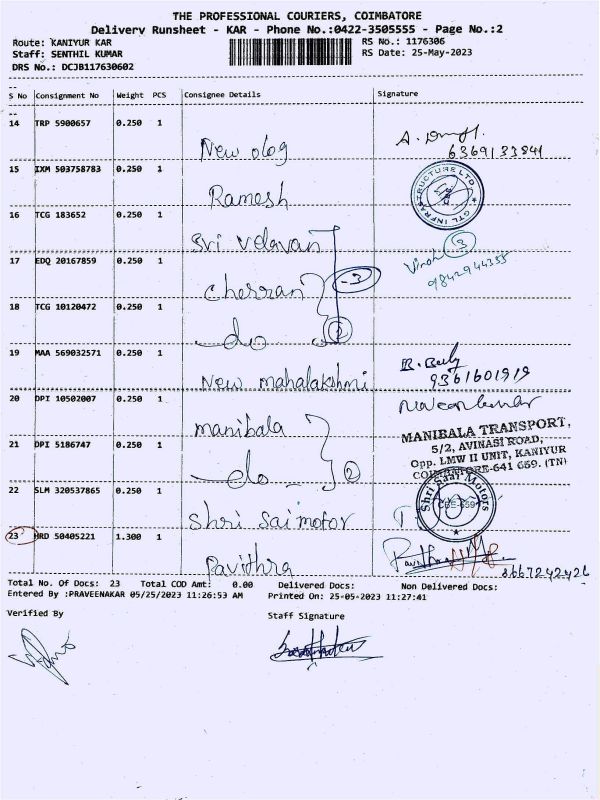 THE PROFESSIONAL COURIERS, COIMBATORE
Delivery Runsheet - KAR - Phone No.:0422-3505555 - Page No.:2
Route: KANIYUR KAR
RS No.: 1176306
Staff: SENTHIL KUMAR
RS Date: 25-May-2023
DRS No.: DCJB117630602
S No Consignment No Weight PCS Consignee Details Signature
14 TRP 5900657 0.250 1
New olog
6369133841
15 IXM 503758783 0.250 1
Ramesh
GTL INFRASTRUCTURE LTD
16 TCG 183652 0.250 1
Sri Velavan
3
9842944355
17 EDQ 20167859 0.250 1
Cherran
-3
18 TCG 10120472 0.250 1
do
2
19 MAA 569032571 0.250 1
New mahalakshmi
9361601919
20 DPI 10502007 0.250 1
manibala
naveenkumar
MANIBALA TRANSPORT,
5/2, AVINASI ROAD,
Opp. LMW II UNIT, KANIYUR
COIMBATORE-641 659. (TN)
21 DPI 5186747 0.250 1
do
2
22 SLM 320537865 0.250 1
Shri Sai motor
Shri Saai Motors
CBE-659
23 HRD 50405221 1.300 1
Pavithra
8667242426
Total No. Of Docs: 23 Total COD Amt: 0.00 Delivered Docs: Non Delivered Docs:
Entered By :PRAVEENAKAR 05/25/2023 11:26:53 AM Printed On: 25-05-2023 11:27:41
Verified By
Staff Signature